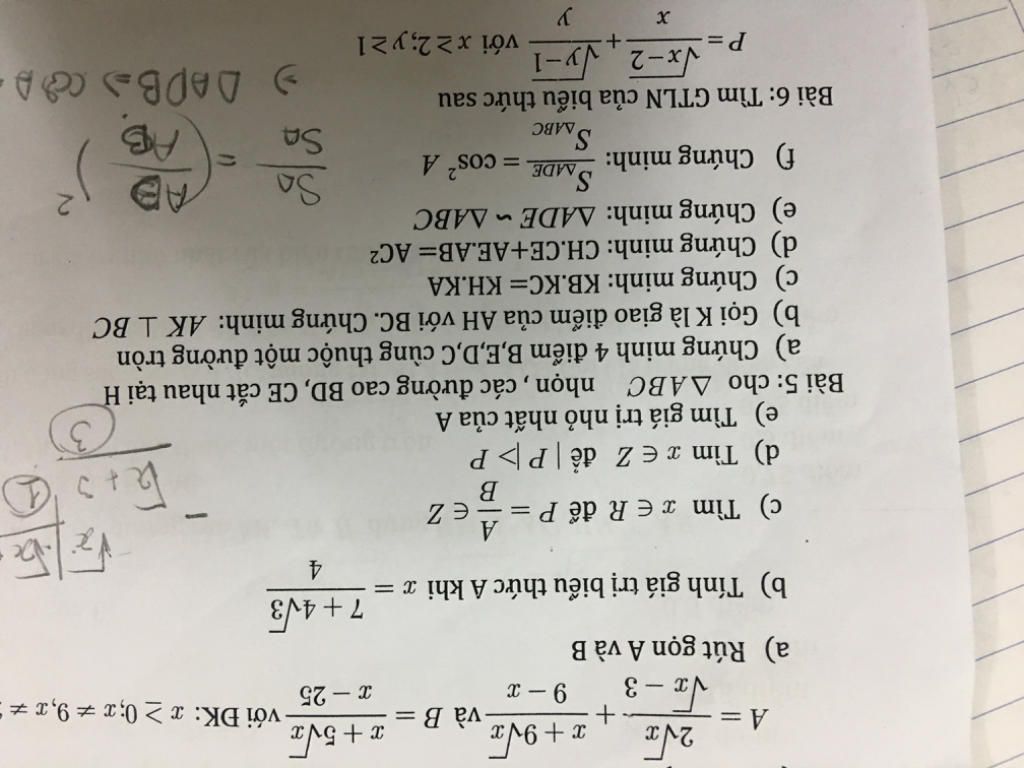 A = 2√x / (√x − 3) + (x + 9√x) / (9 − x) và B = (x + 5√x) / (x − 25) với ĐK: x ≥ 0; x ≠ 9, x ≠
a) Rút gọn A và B
b) Tính giá trị biểu thức A khi x = (7 + 4√3) / 4
c) Tìm x ∈ R để P = A / B ∈ Z
d) Tìm x ∈ Z để | P |> P
e) Tìm giá trị nhỏ nhất của A
Bài 5: cho △ABC nhọn , các đường cao BD, CE cắt nhau tại H
a) Chứng minh 4 điểm B,E,D,C cùng thuộc một đường tròn
b) Gọi K là giao điểm của AH với BC. Chứng minh: AK ⊥ BC
c) Chứng minh: KB.KC= KH.KA
d) Chứng minh: CH.CE+AE.AB= AC²
e) Chứng minh: △ADE ∽ △ABC
f) Chứng minh: S△ADE / S△ABC = cos² A
Bài 6: Tìm GTLN của biểu thức sau
P = √(x−2) / x + √(y−1) / y với x ≥ 2; y ≥ 1
√x + 3
1
3
=
2
⇒ △ADB ⇒ cos A